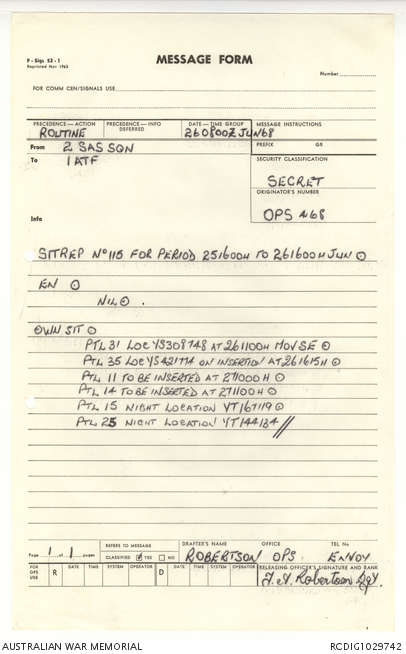 P - Sigs 52 - 1
Reprinted Nov 1965
MESSAGE FORM
Number
FOR COMM CEN/SIGNALS USE
PRECEDENCE — ACTION
ROUTINE
PRECEDENCE — INFO
DEFERRED
DATE — TIME GROUP
260800Z JUN68
MESSAGE INSTRUCTIONS
From 2 SAS SQN
PREFIX GR
To 1 ATF
SECURITY CLASSIFICATION
SECRET
ORIGINATOR'S NUMBER
Info
OPS 468
SITREP No 115 FOR PERIOD 251600H TO 261600H JUN ⊙
EN ⊙
NIL ⊙ .
OWN SIT ⊙
PTL 31 LOC YS308748 AT 261100H MOV SE ⊙
PTL 35 LOC YS421774 ON INSERTION AT 261615H ⊙
PTL 11 TO BE INSERTED AT 271000H ⊙
PTL 14 TO BE INSERTED AT 271100H ⊙
PTL 15 NIGHT LOCATION YT167119 ⊙
PTL 25 NIGHT LOCATION YT144134 //
Page 1 of 1 pages
REFERS TO MESSAGE
CLASSIFIED YES NO
DRAFTER'S NAME
ROBERTSON
OFFICE
OPS
TEL No
ENVOY
FOR OPS USE
R DATE TIME SYSTEM OPERATOR D DATE TIME SYSTEM OPERATOR
RELEASING OFFICER'S SIGNATURE AND RANK
Robertson Sgt.
AUSTRALIAN WAR MEMORIAL
RCDIG1029742